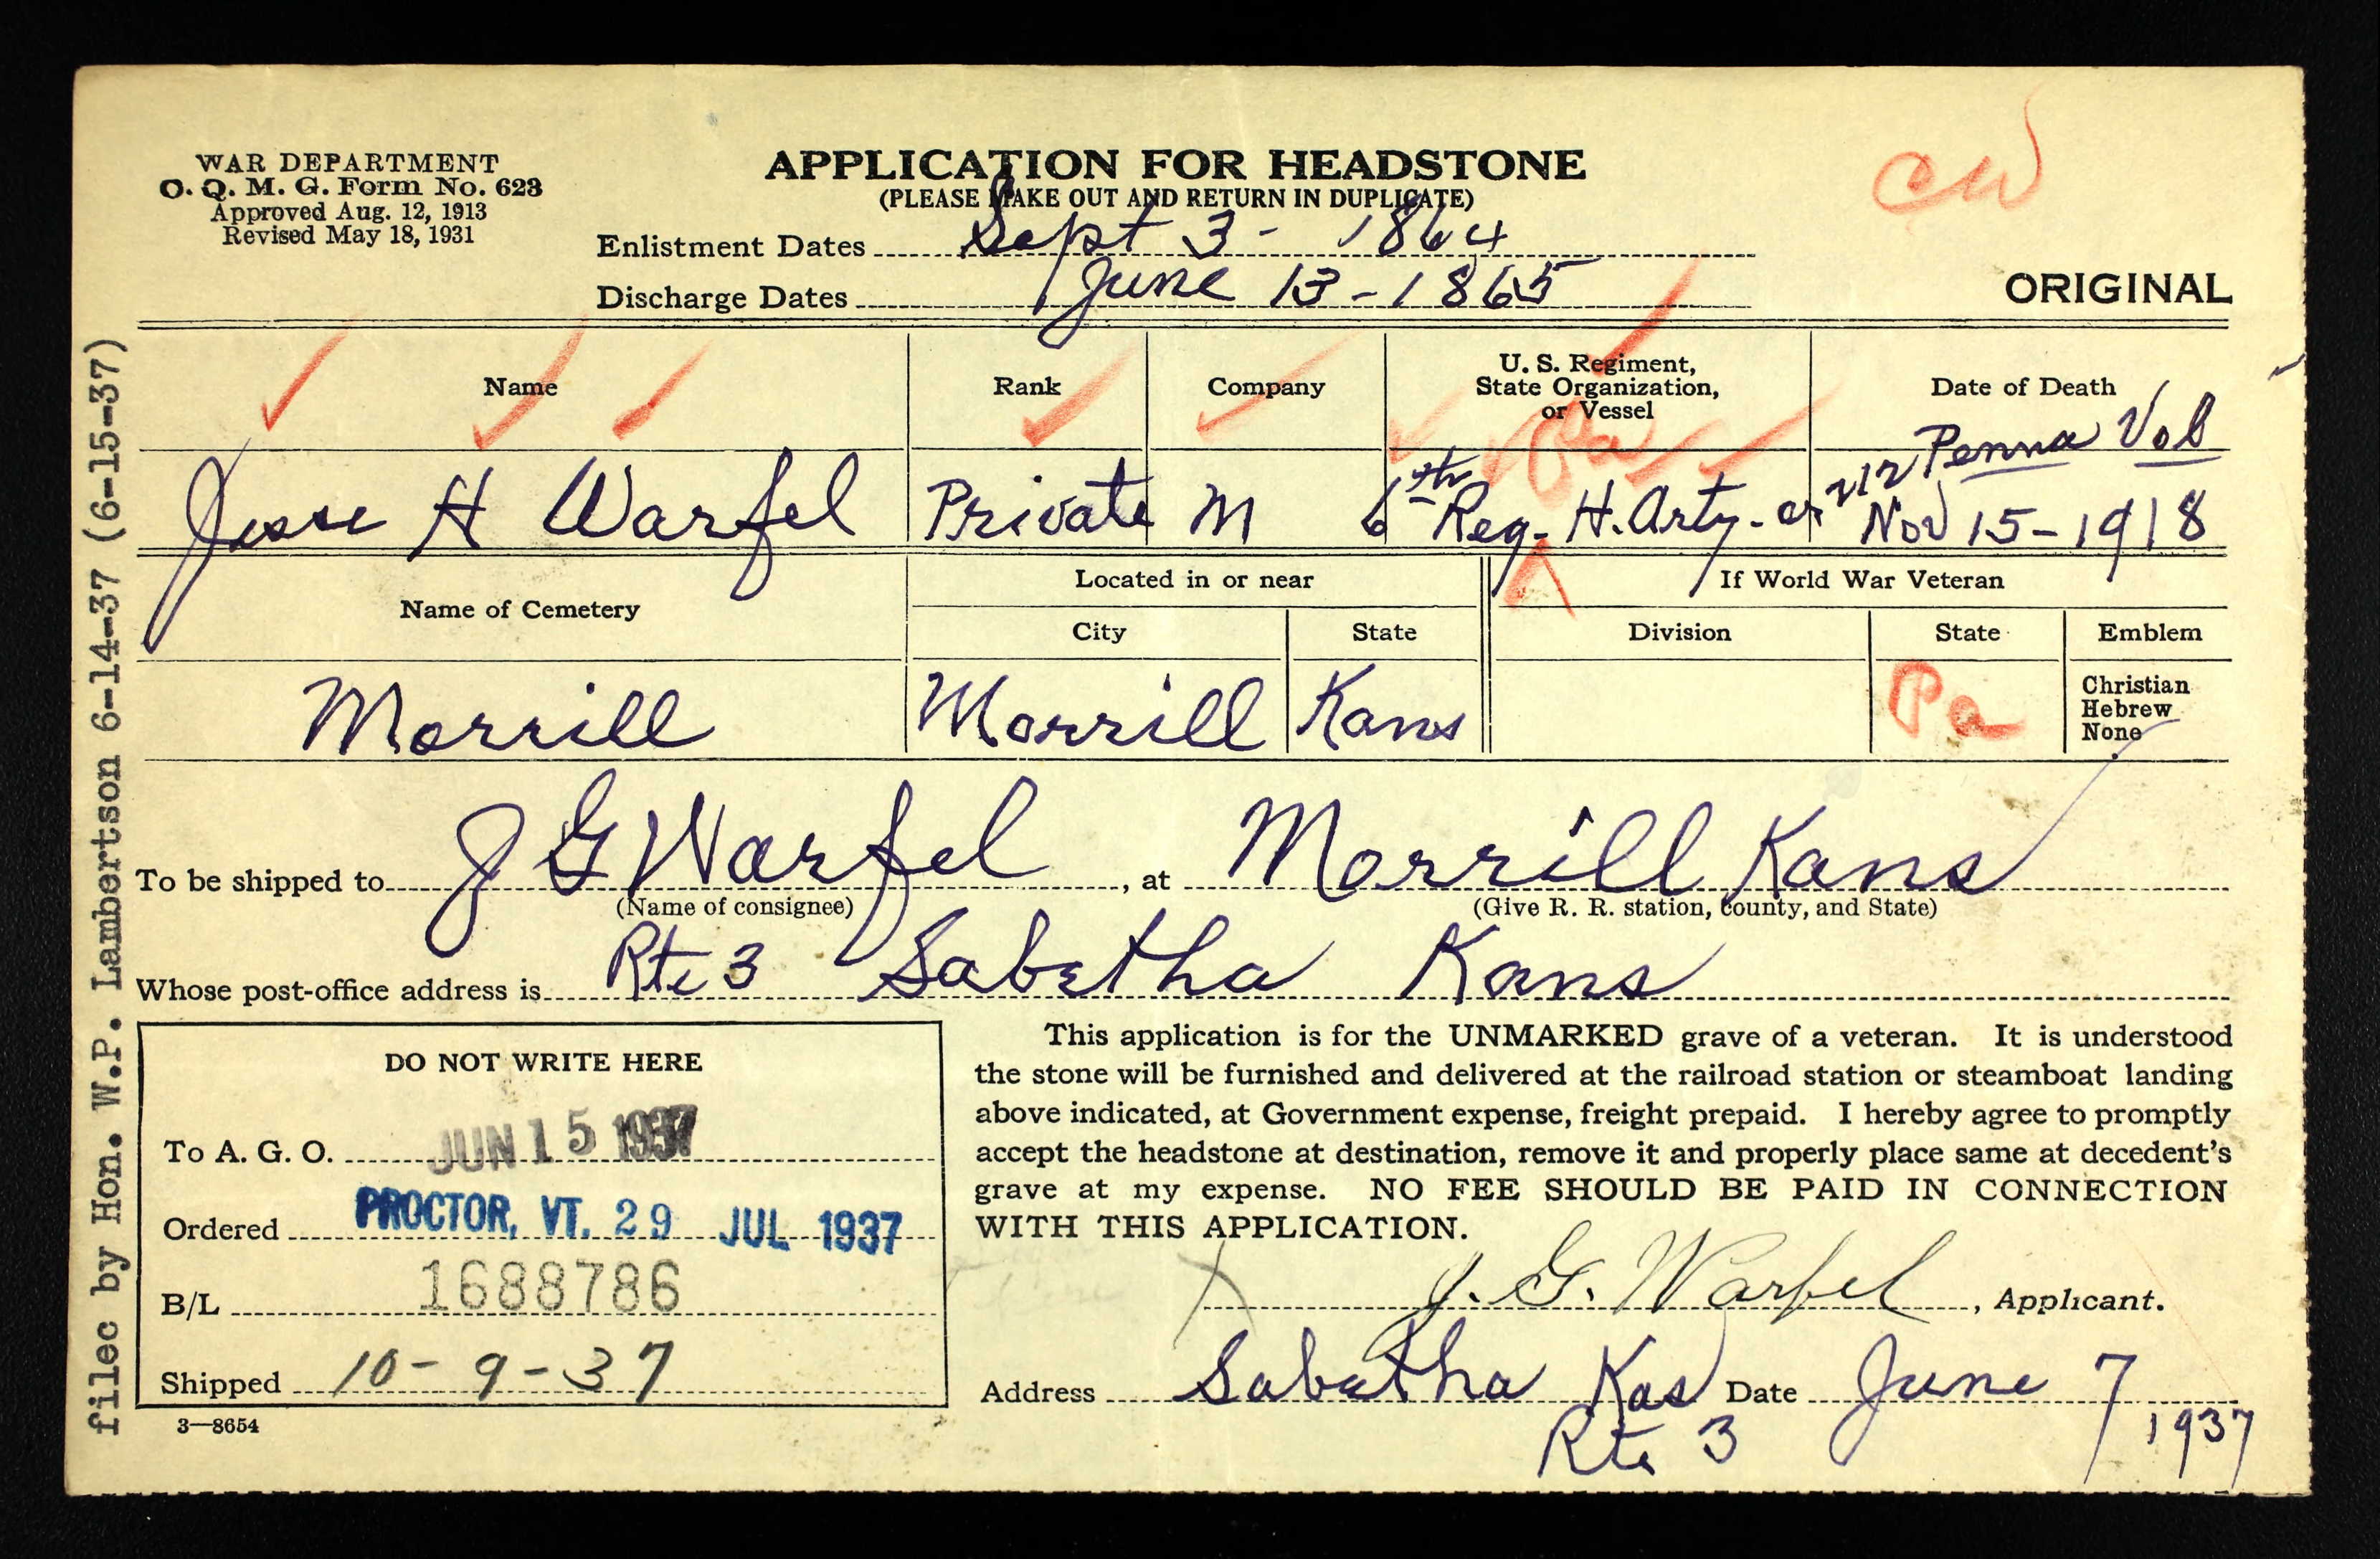 WAR DEPARTMENT
O. Q. M. G. Form No. 623
Approved Aug. 12, 1913
Revised May 18, 1931
APPLICATION FOR HEADSTONE
(PLEASE MAKE OUT AND RETURN IN DUPLICATE)
CW
ORIGINAL
Enlistment Dates Sept 3 - 1864
Discharge Dates June 13 - 1865
Name Rank Company U. S. Regiment, State Organization, or Vessel Date of Death
Pa
Jesse H Warfel Private M 6th Reg- H. Arty. or 212 Penna Vol Nov 15-1918
Name of Cemetery Located in or near If World War Veteran
City State Division State Emblem
Morrill Morrill Kans Pa Christian
Hebrew
None
To be shipped to J G Warfel, at Morrill Kans
(Name of consignee) (Give R. R. station, county, and State)
Whose post-office address is Rte 3 Sabetha Kans
DO NOT WRITE HERE
To A. G. O. JUN 15 1937
Ordered PROCTOR, VT. 29 JUL 1937
B/L 1688786
Shipped 10-9-37
3—8654
This application is for the UNMARKED grave of a veteran. It is understood
the stone will be furnished and delivered at the railroad station or steamboat landing
above indicated, at Government expense, freight prepaid. I hereby agree to promptly
accept the headstone at destination, remove it and properly place same at decedent's
grave at my expense. NO FEE SHOULD BE PAID IN CONNECTION
WITH THIS APPLICATION.
X J. G. Warfel, Applicant.
Address Sabetha Kas Date June 7
Rte 3 1937
filec by Hon. W.P. Lambertson 6-14-37 (6-15-37)